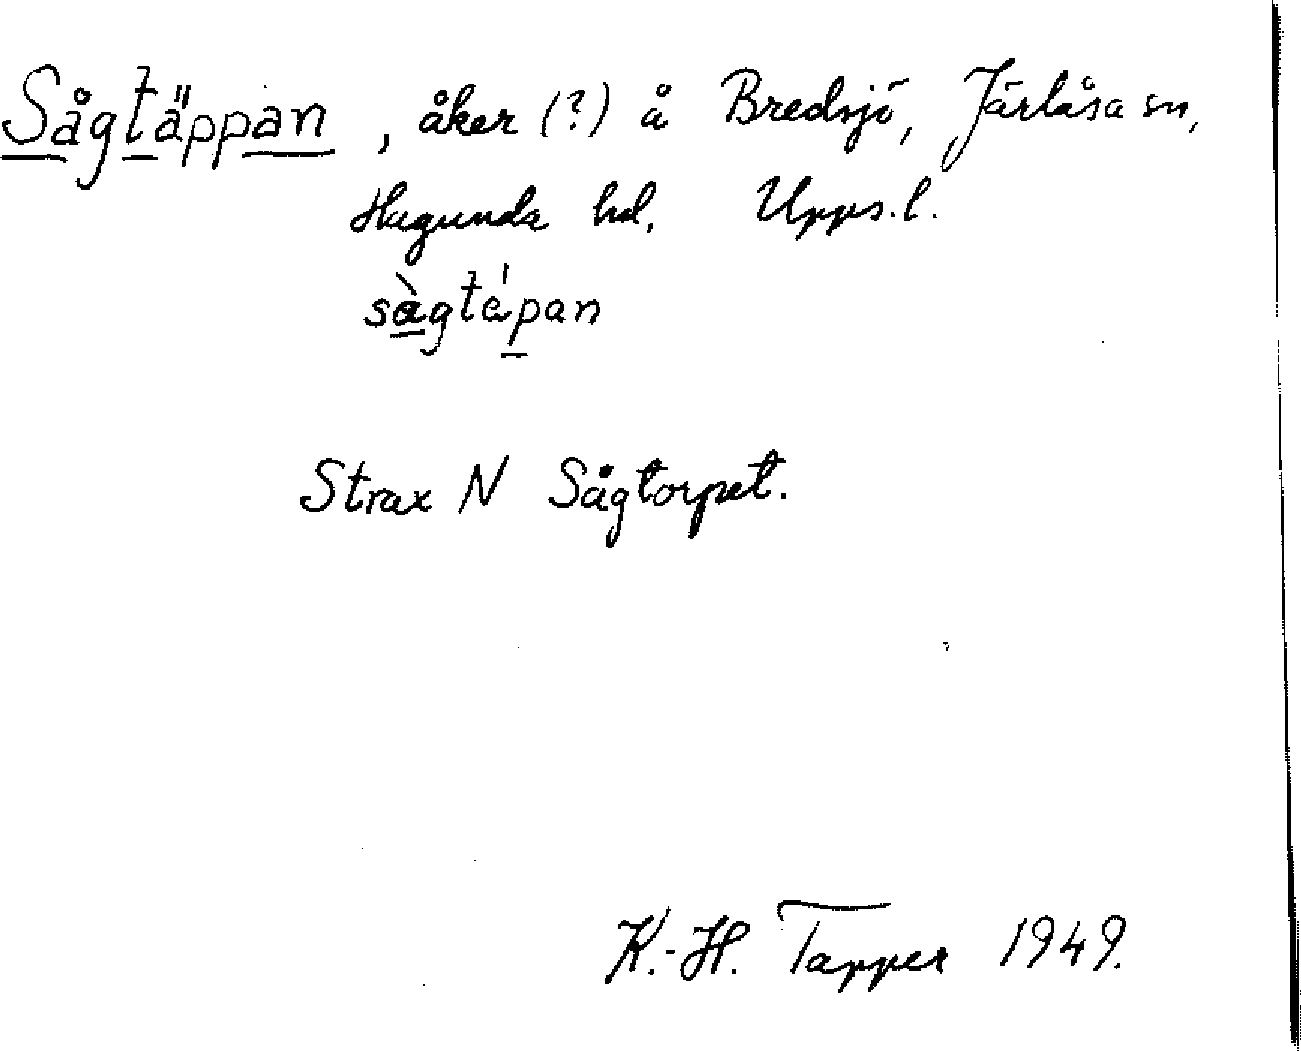 Sågtäppan, åker (?) å Bredsjö, Järlåsa sn,
Hagunda hd. Upps. l.
sàgtápan
Strax N Sågtorpet.
K.-H. Tapper 1949.